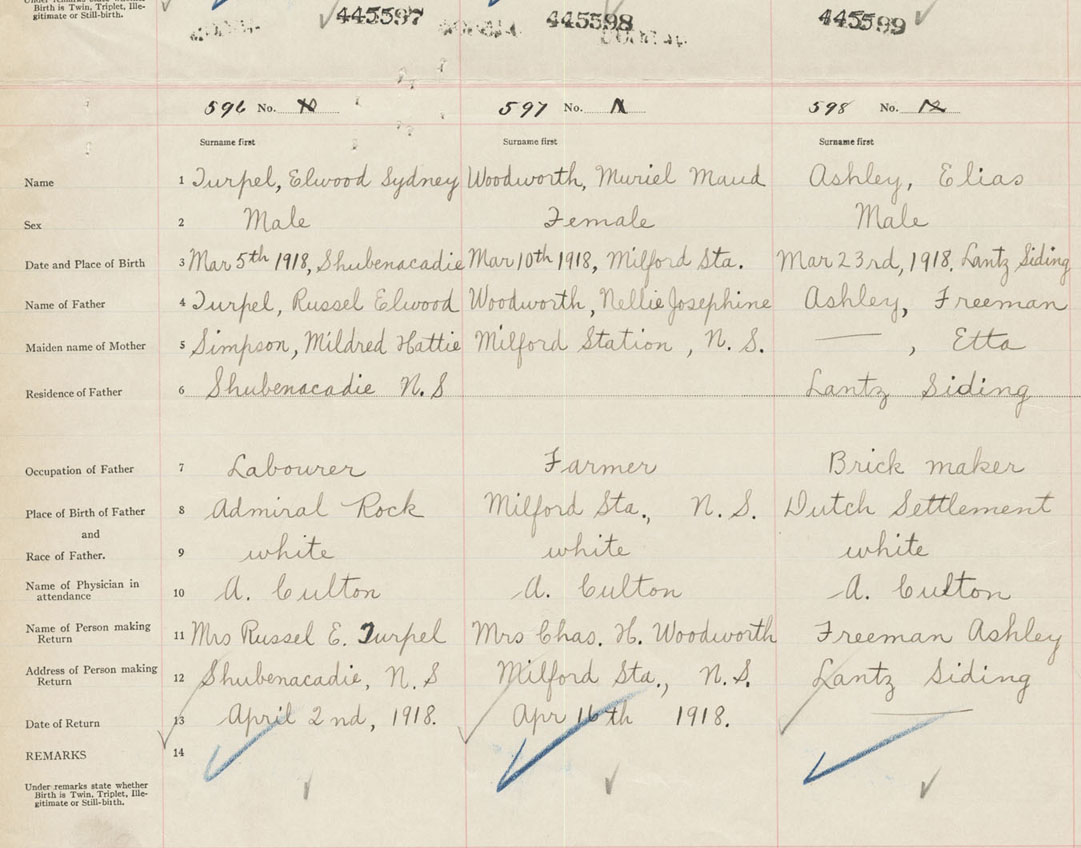 Under remarks state whether
Birth is Twin, Triplet, Ille-
gitimate or Still-birth.
445597 445598 445599
596 No. 597 No. 598 No.
Surname first Surname first Surname first
Name 1 Turpel, Elwood Sydney Woodworth, Muriel Maud Ashley, Elias
Sex 2 Male Female Male
Date and Place of Birth 3 Mar 5th 1918, Shubenacadie Mar 10th 1918, Milford Sta. Mar 23rd, 1918. Lantz Siding
Name of Father 4 Turpel, Russel Elwood Woodworth, Nellie Josephine Ashley, Freeman
Maiden name of Mother 5 Simpson, Mildred Hattie Milford Station, N. S. — , Etta
Residence of Father 6 Shubenacadie N. S Lantz Siding
Occupation of Father 7 Labourer Farmer Brick maker
Place of Birth of Father 8 Admiral Rock Milford Sta., N. S. Dutch Settlement
and
Race of Father. 9 white white white
Name of Physician in
attendance 10 A. Culton A. Culton A. Culton
Name of Person making
Return 11 Mrs Russel E. Turpel Mrs Chas. H. Woodworth Freeman Ashley
Address of Person making
Return 12 Shubenacadie, N. S Milford Sta., N. S. Lantz Siding
Date of Return 13 April 2nd, 1918. Apr 16th 1918. —
REMARKS 14
Under remarks state whether
Birth is Twin, Triplet, Ille-
gitimate or Still-birth.